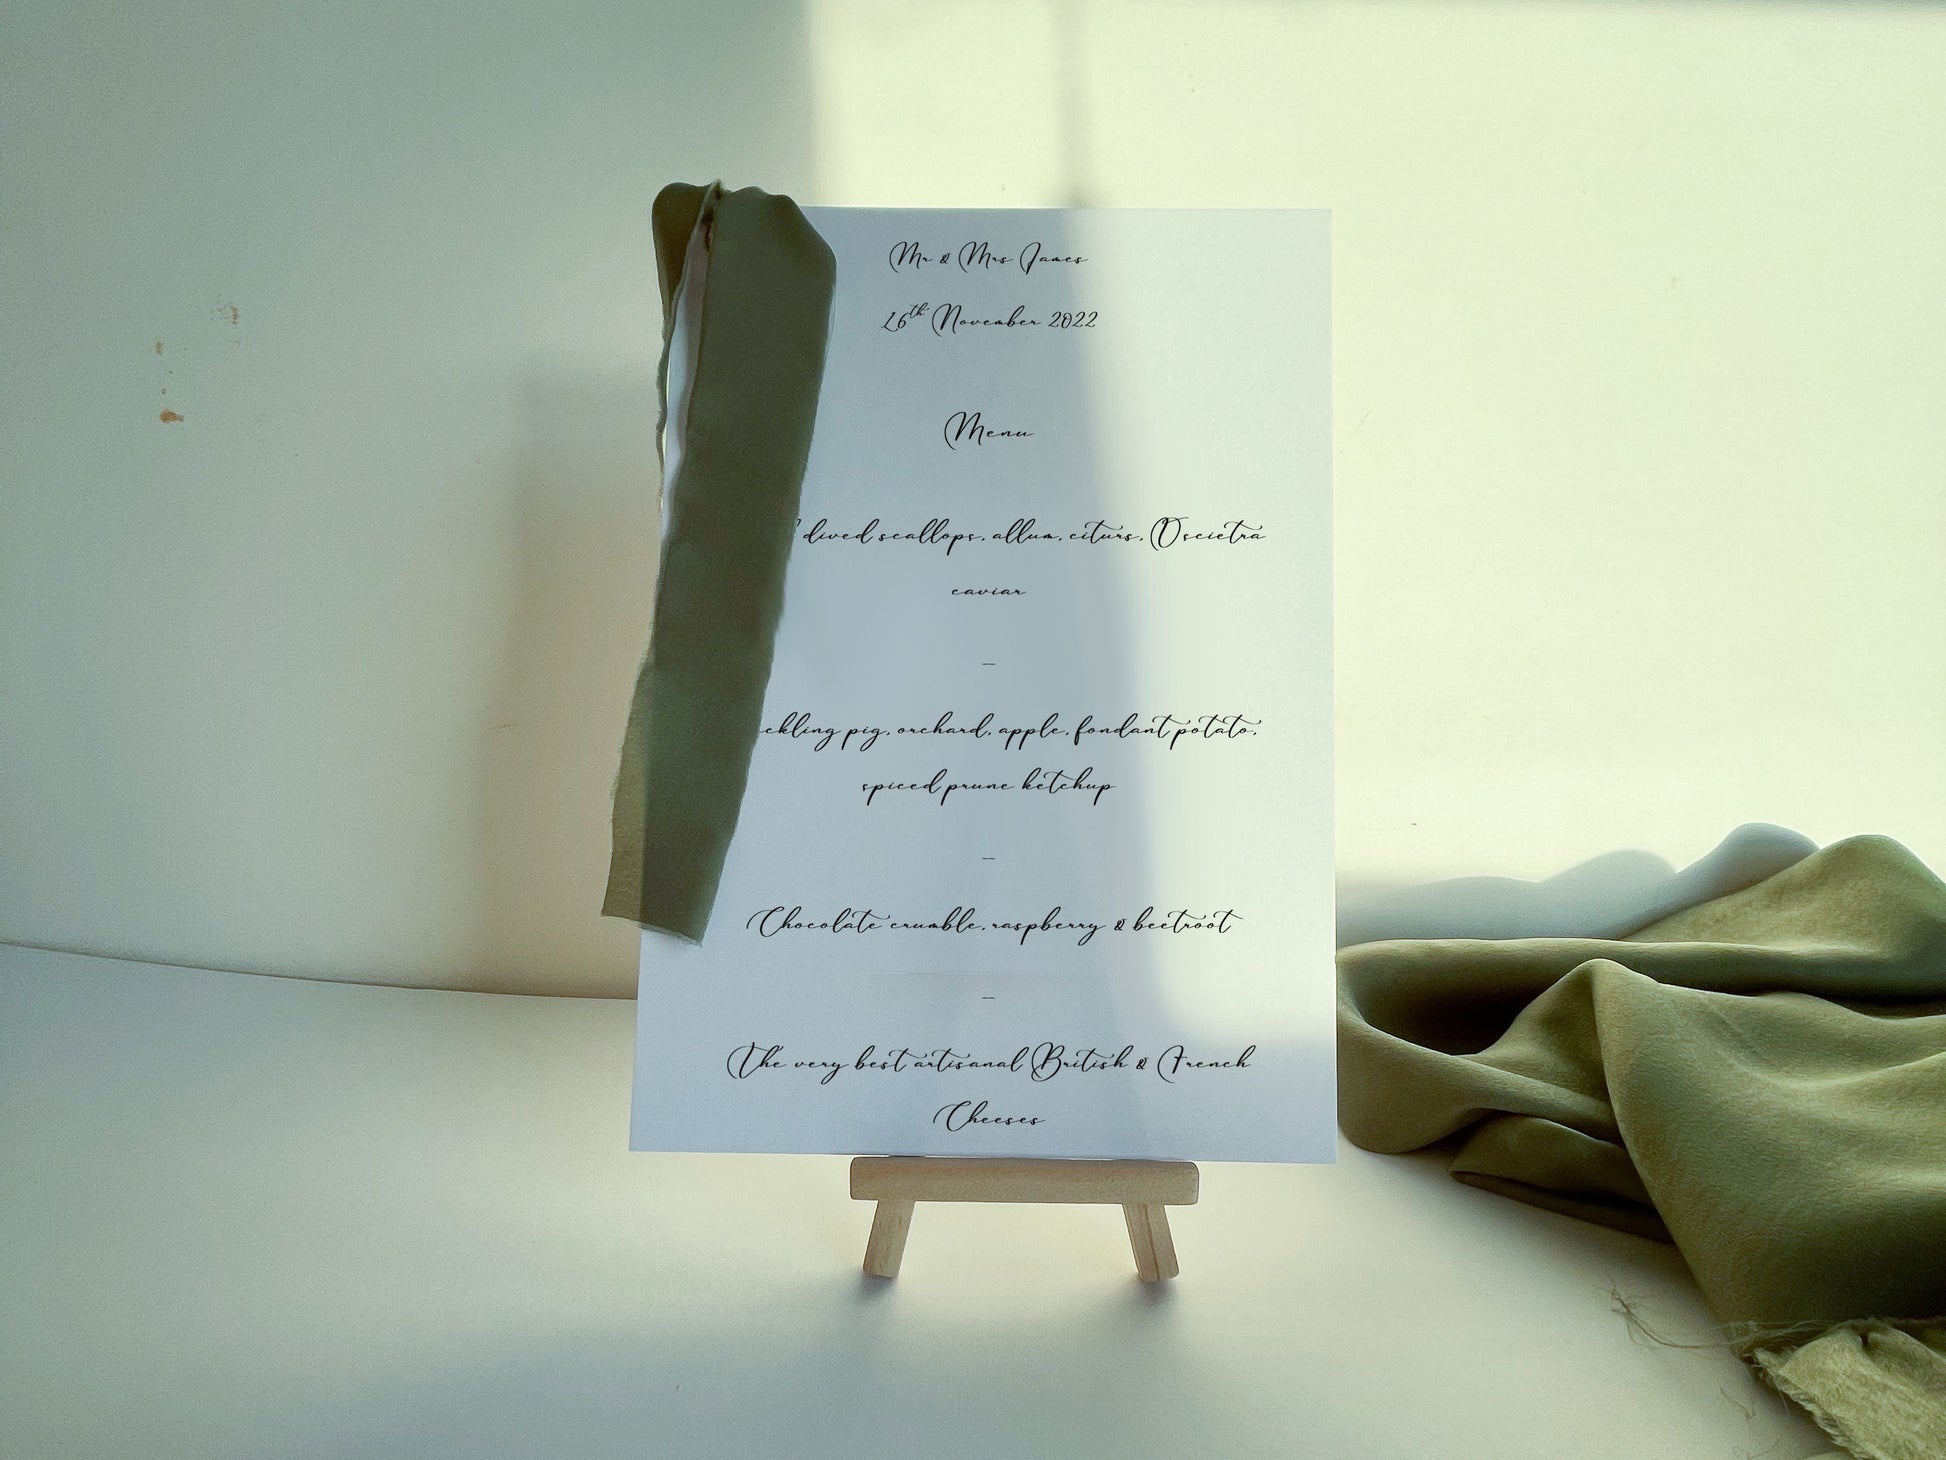 Mr & Mrs James
16th November 2022
Menu
dived scallops, allum, citurs, Oscietra
caviar
–
pig, orchard, apple, fondant potato,
spiced prune ketchup
–
Chocolate crumble, raspberry & beetroot
–
The very best artisanal British & French
Cheeses